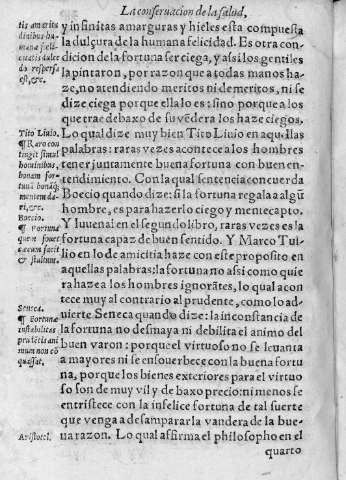 La conseruacion de la salud,
y infinitas amarguras y hieles esta compuesta
la dulçura de la humana felicidad. Es otra con-
dicion de la fortuna ser ciega, y assi los gentiles
la pintaron, por razon que a todas manos ha-
ze, no atendiendo meritos ni demeritos, ni se
dize ciega porque ella lo es: sino porque a los
que trae debaxo de su vẽdera los haze ciegos.
Lo qual dize muy bien Tito Liuio en aquellas
palabras: raras vezes acontece a los hombres
tener juntamente buena fortuna con buen en-
tendimiento. Con la qual sentencia concuerda
Boecio quando dize: si la fortuna regala a algũ
hombre, es para hazerlo ciego y mentecapto.
Y Iuuenal en el segundo libro, raras vezes es la
fortuna capaz de buen sentido. Y Marco Tul-
lio en lo de amicitia haze con este proposito en
aquellas palabras: la fortuna no assi como quie
ra haze a los hombres ignorãtes, lo qual acon
tece muy al contrario al prudente, como lo ad-
uierte Seneca quando dize: la inconstancia de
la fortuna no desmaya ni debilita el animo del
buen varon: porque el virtuoso no se leuanta
a mayores ni se ensouerbece con la buena fortu
na, porque los bienes exteriores para el virtuo
so son de muy vil y de baxo precio: ni menos se
entristece con la infelice fortuna de tal suerte
que venga a desamparar la vandera de la bue-
na razon. Lo qual affirma el philosopho en el
quarto
tis amaritu
dinibus hu-
manæ fœli-
citatis dulce
do respersa
est, &c.
Tito Liuio.
¶ Raro con
tingit simul
hominibus,
bonam for-
tunã bonãq;
mentem da-
ri, &c.
Boecio.
¶ Fortuna
quem fouet
cæcum facit
& stultum.
Seneca.
¶ Fortunæ
instabilitas
prudẽtis ani
mum non cõ
quassat.
Aristotel.